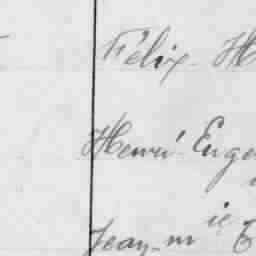 Félix H
Henri Euge
Jean-m ie E